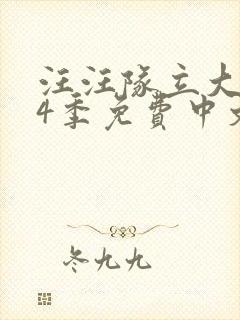 汪汪队立大
4季免费中文
冬九九